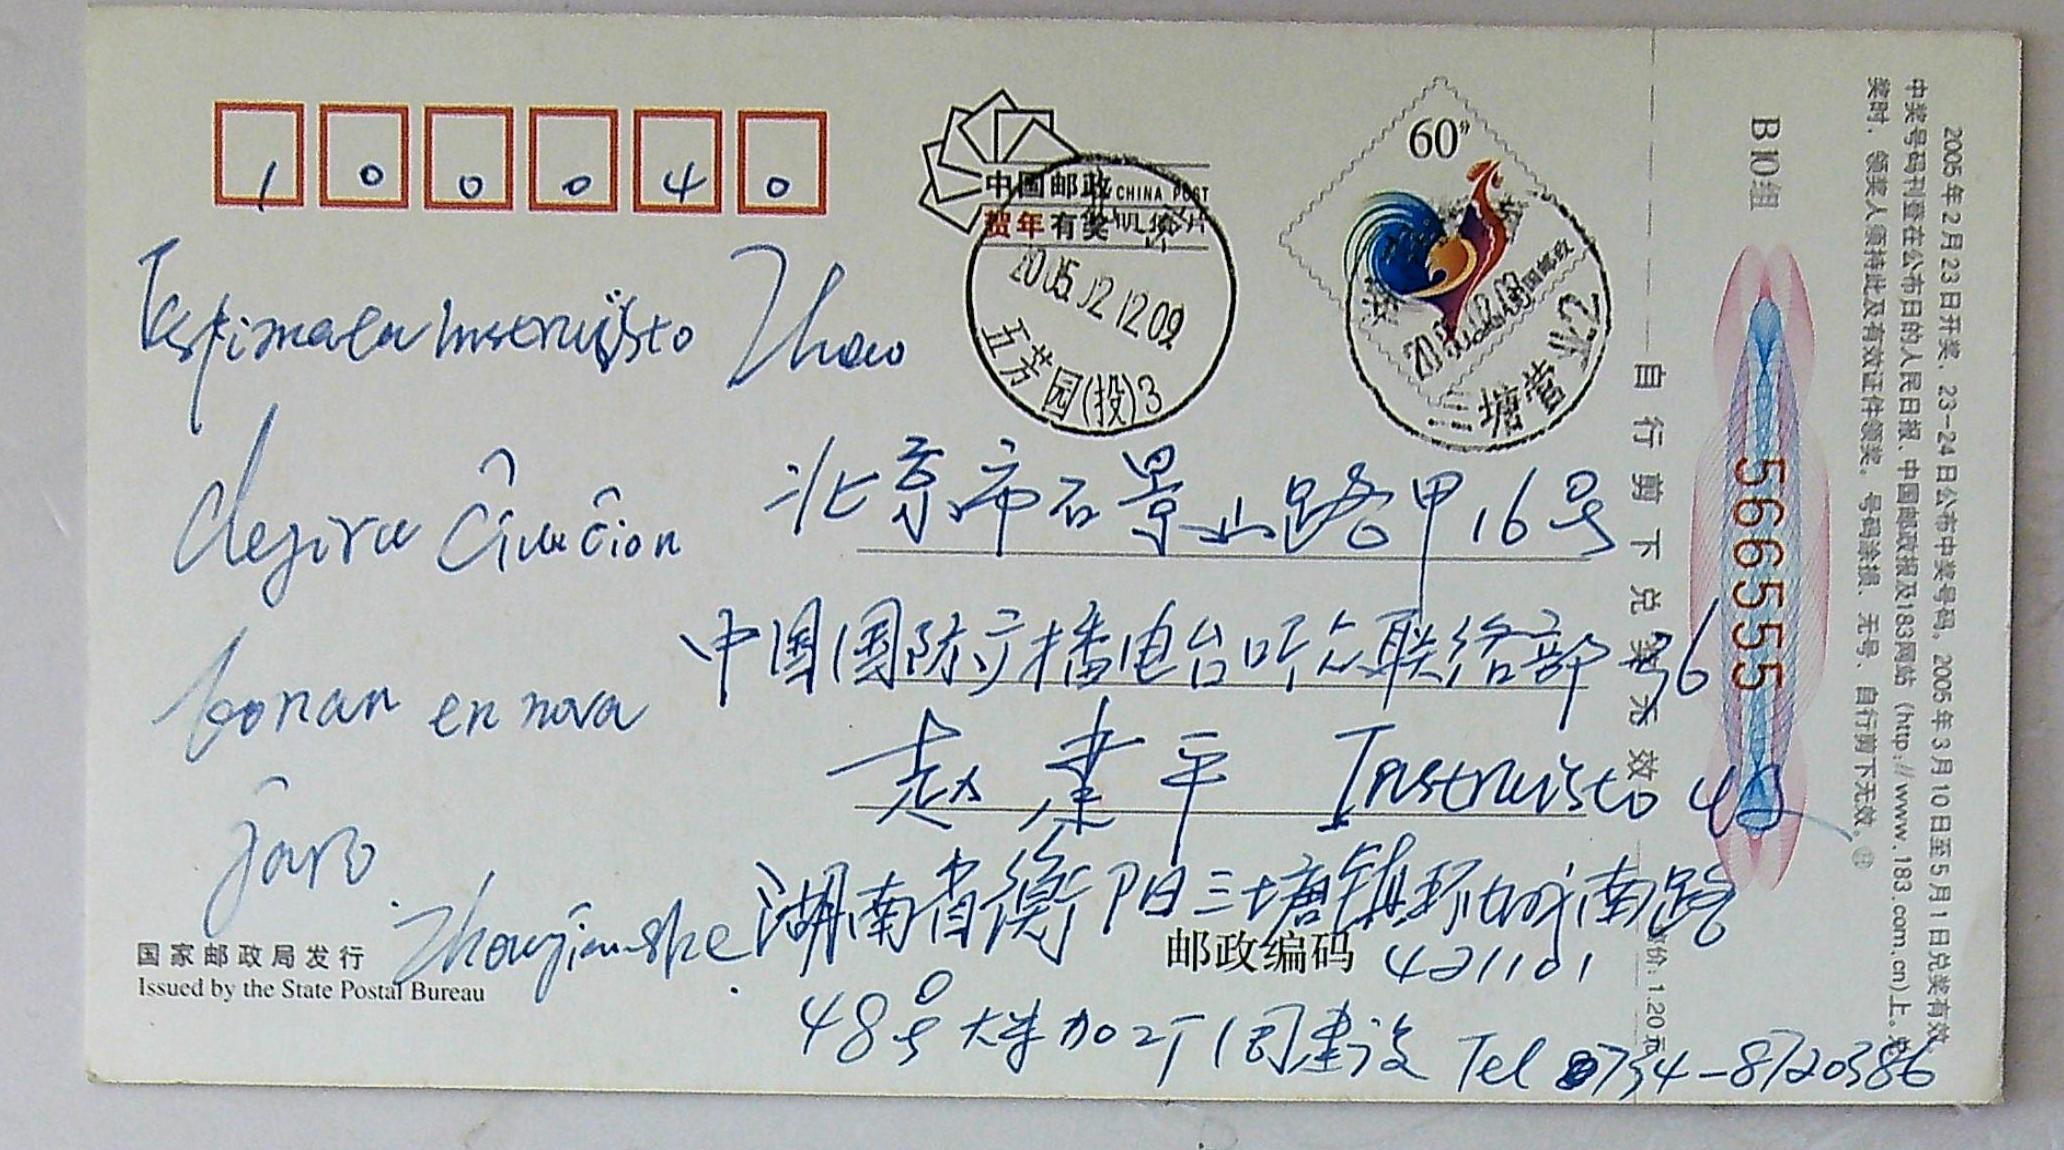 100040
中国邮政 CHINA POST
贺年有奖明信片
2005.12.12.09
五芳园(投)3
60分
中国邮政
三塘营业2
Estimata Instruisto Zhao
deziru ĉiuĉion
bonan en nova
ĵaro
Zhoujianshe
北京市石景山路甲16号
中国国际广播电台听众联络部
赵建平 Instruisto
湖南省衡阳三塘镇环城南路
邮政编码 421101
48号大米加工厂周建设 Tel 0734-8720386
国家邮政局发行
Issued by the State Postal Bureau
自行剪下兑奖无效
售价: 1.20元
B10组
566555
2005年2月23日开奖，23-24日公布中奖号码。2005年3月10日至5月1日兑奖有效。
中奖号码刊登在公布日的人民日报、中国邮政报及183网站 (http://www.183.com.cn)上。兑
奖时，领奖人须持此及有效证件领奖。号码涂损、无号、自行剪下无效。